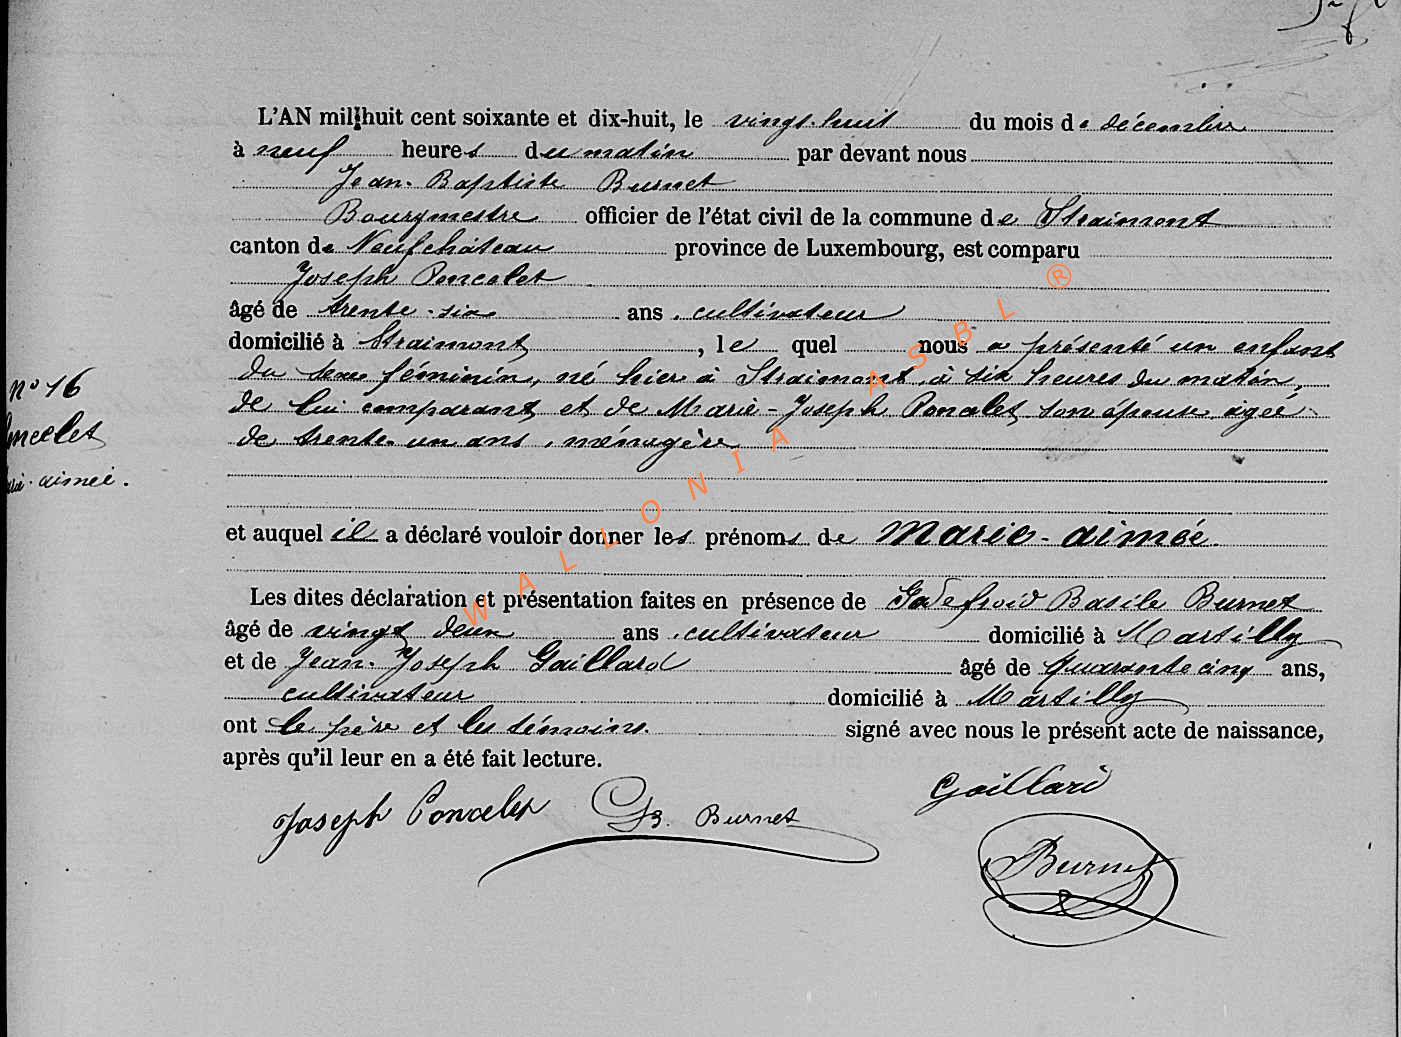 L'AN mil huit cent soixante et dix-huit, le vingt-huit du mois de décembre
à neuf heures du matin par devant nous
Jean-Baptiste Burnet
Bourgmestre officier de l'état civil de la commune de Straimont
canton de Neufchâteau province de Luxembourg, est comparu
Joseph Poncelet
âgé de trente-six ans, cultivateur
domicilié à Straimont, lequel nous a présenté un enfant
du sexe féminin, né hier à Straimont, à six heures du matin,
de lui comparant et de Marie-Joseph Poncelet son épouse, agée
de trente-un ans, ménagère
N° 16
Poncelet
aimée.
et auquel il a déclaré vouloir donner les prénoms de Marie-aimée.
Les dites déclaration et présentation faites en présence de Godefroid Basile Burnet
âgé de vingt deux ans, cultivateur domicilié à Martilly
et de Jean-Joseph Gaillard âgé de quarante cinq ans,
cultivateur domicilié à Martilly
ont le père et les témoins signé avec nous le présent acte de naissance,
après qu'il leur en a été fait lecture.
Joseph Poncelet GB. Burnet Gaillard
Burnet
WALLONIA ASBL ®